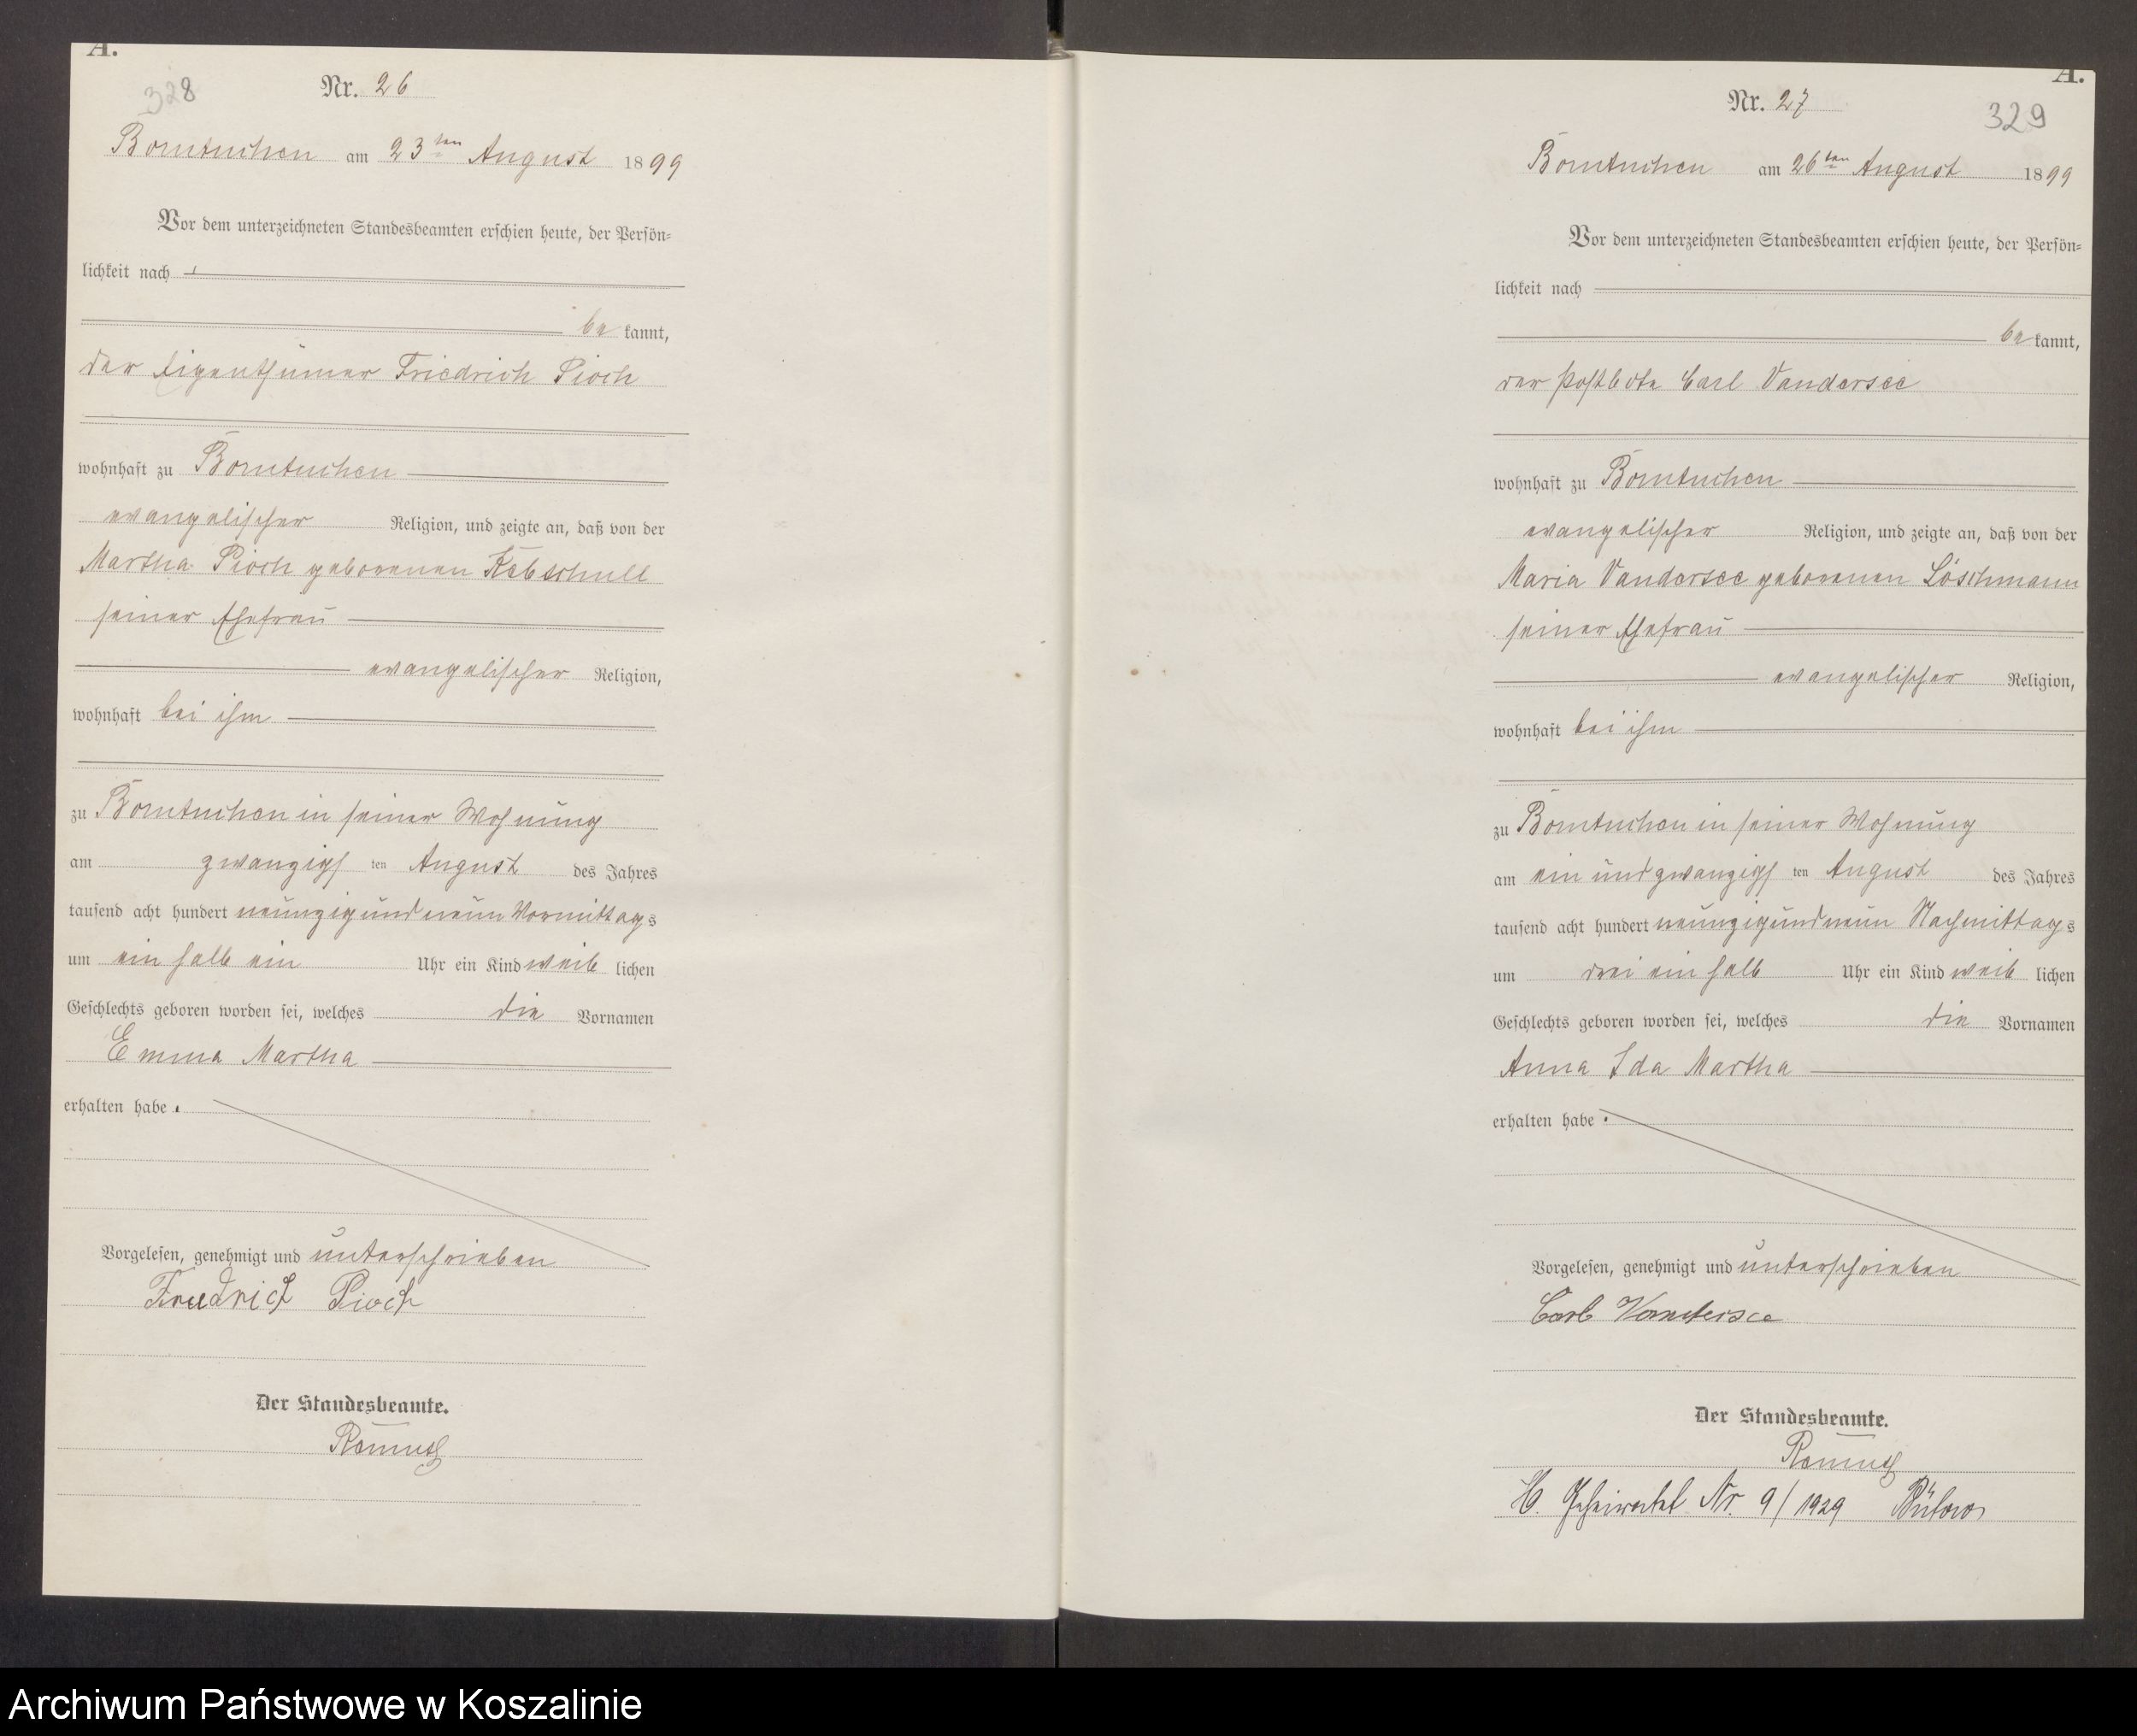 A.
328
Nr. 26
Borntuchen am 23ten August 1899
Vor dem unterzeichneten Standesbeamten erschien heute, der Persön-
lichkeit nach
be kannt,
der Eigenthümer Friedrich Pioch
wohnhaft zu Borntuchen
evangelischer Religion, und zeigte an, daß von der
Martha Pioch geborenen Kebschull
seiner Ehefrau
evangelischer Religion,
wohnhaft bei ihm
zu Borntuchen in seiner Wohnung
am zwanzigsten August des Jahres
tausend acht hundert neunzig und neun Vormittags
um ein halb ein Uhr ein Kind weiblichen
Geschlechts geboren worden sei, welches die Vornamen
Emma Martha
erhalten habe.
Vorgelesen, genehmigt und unterschrieben
Friedrich Pioch
Der Standesbeamte.
A.
Nr. 27
329
Borntuchen am 26ten August 1899
Vor dem unterzeichneten Standesbeamten erschien heute, der Persön-
lichkeit nach
be kannt,
der Postbote Carl Vandersee
wohnhaft zu Borntuchen
evangelischer Religion, und zeigte an, daß von der
Maria Vandersee geborenen Löschmann
seiner Ehefrau
evangelischer Religion,
wohnhaft bei ihm
zu Borntuchen in seiner Wohnung
am ein und zwanzigsten August des Jahres
tausend acht hundert neunzig und neun Nachmittags
um drei ein halb Uhr ein Kind weiblichen
Geschlechts geboren worden sei, welches die Vornamen
Anna Ida Martha
erhalten habe.
Vorgelesen, genehmigt und unterschrieben
Carl Vandersee
Der Standesbeamte.
Nr. 9/1929 Bütow
Archiwum Państwowe w Koszalinie